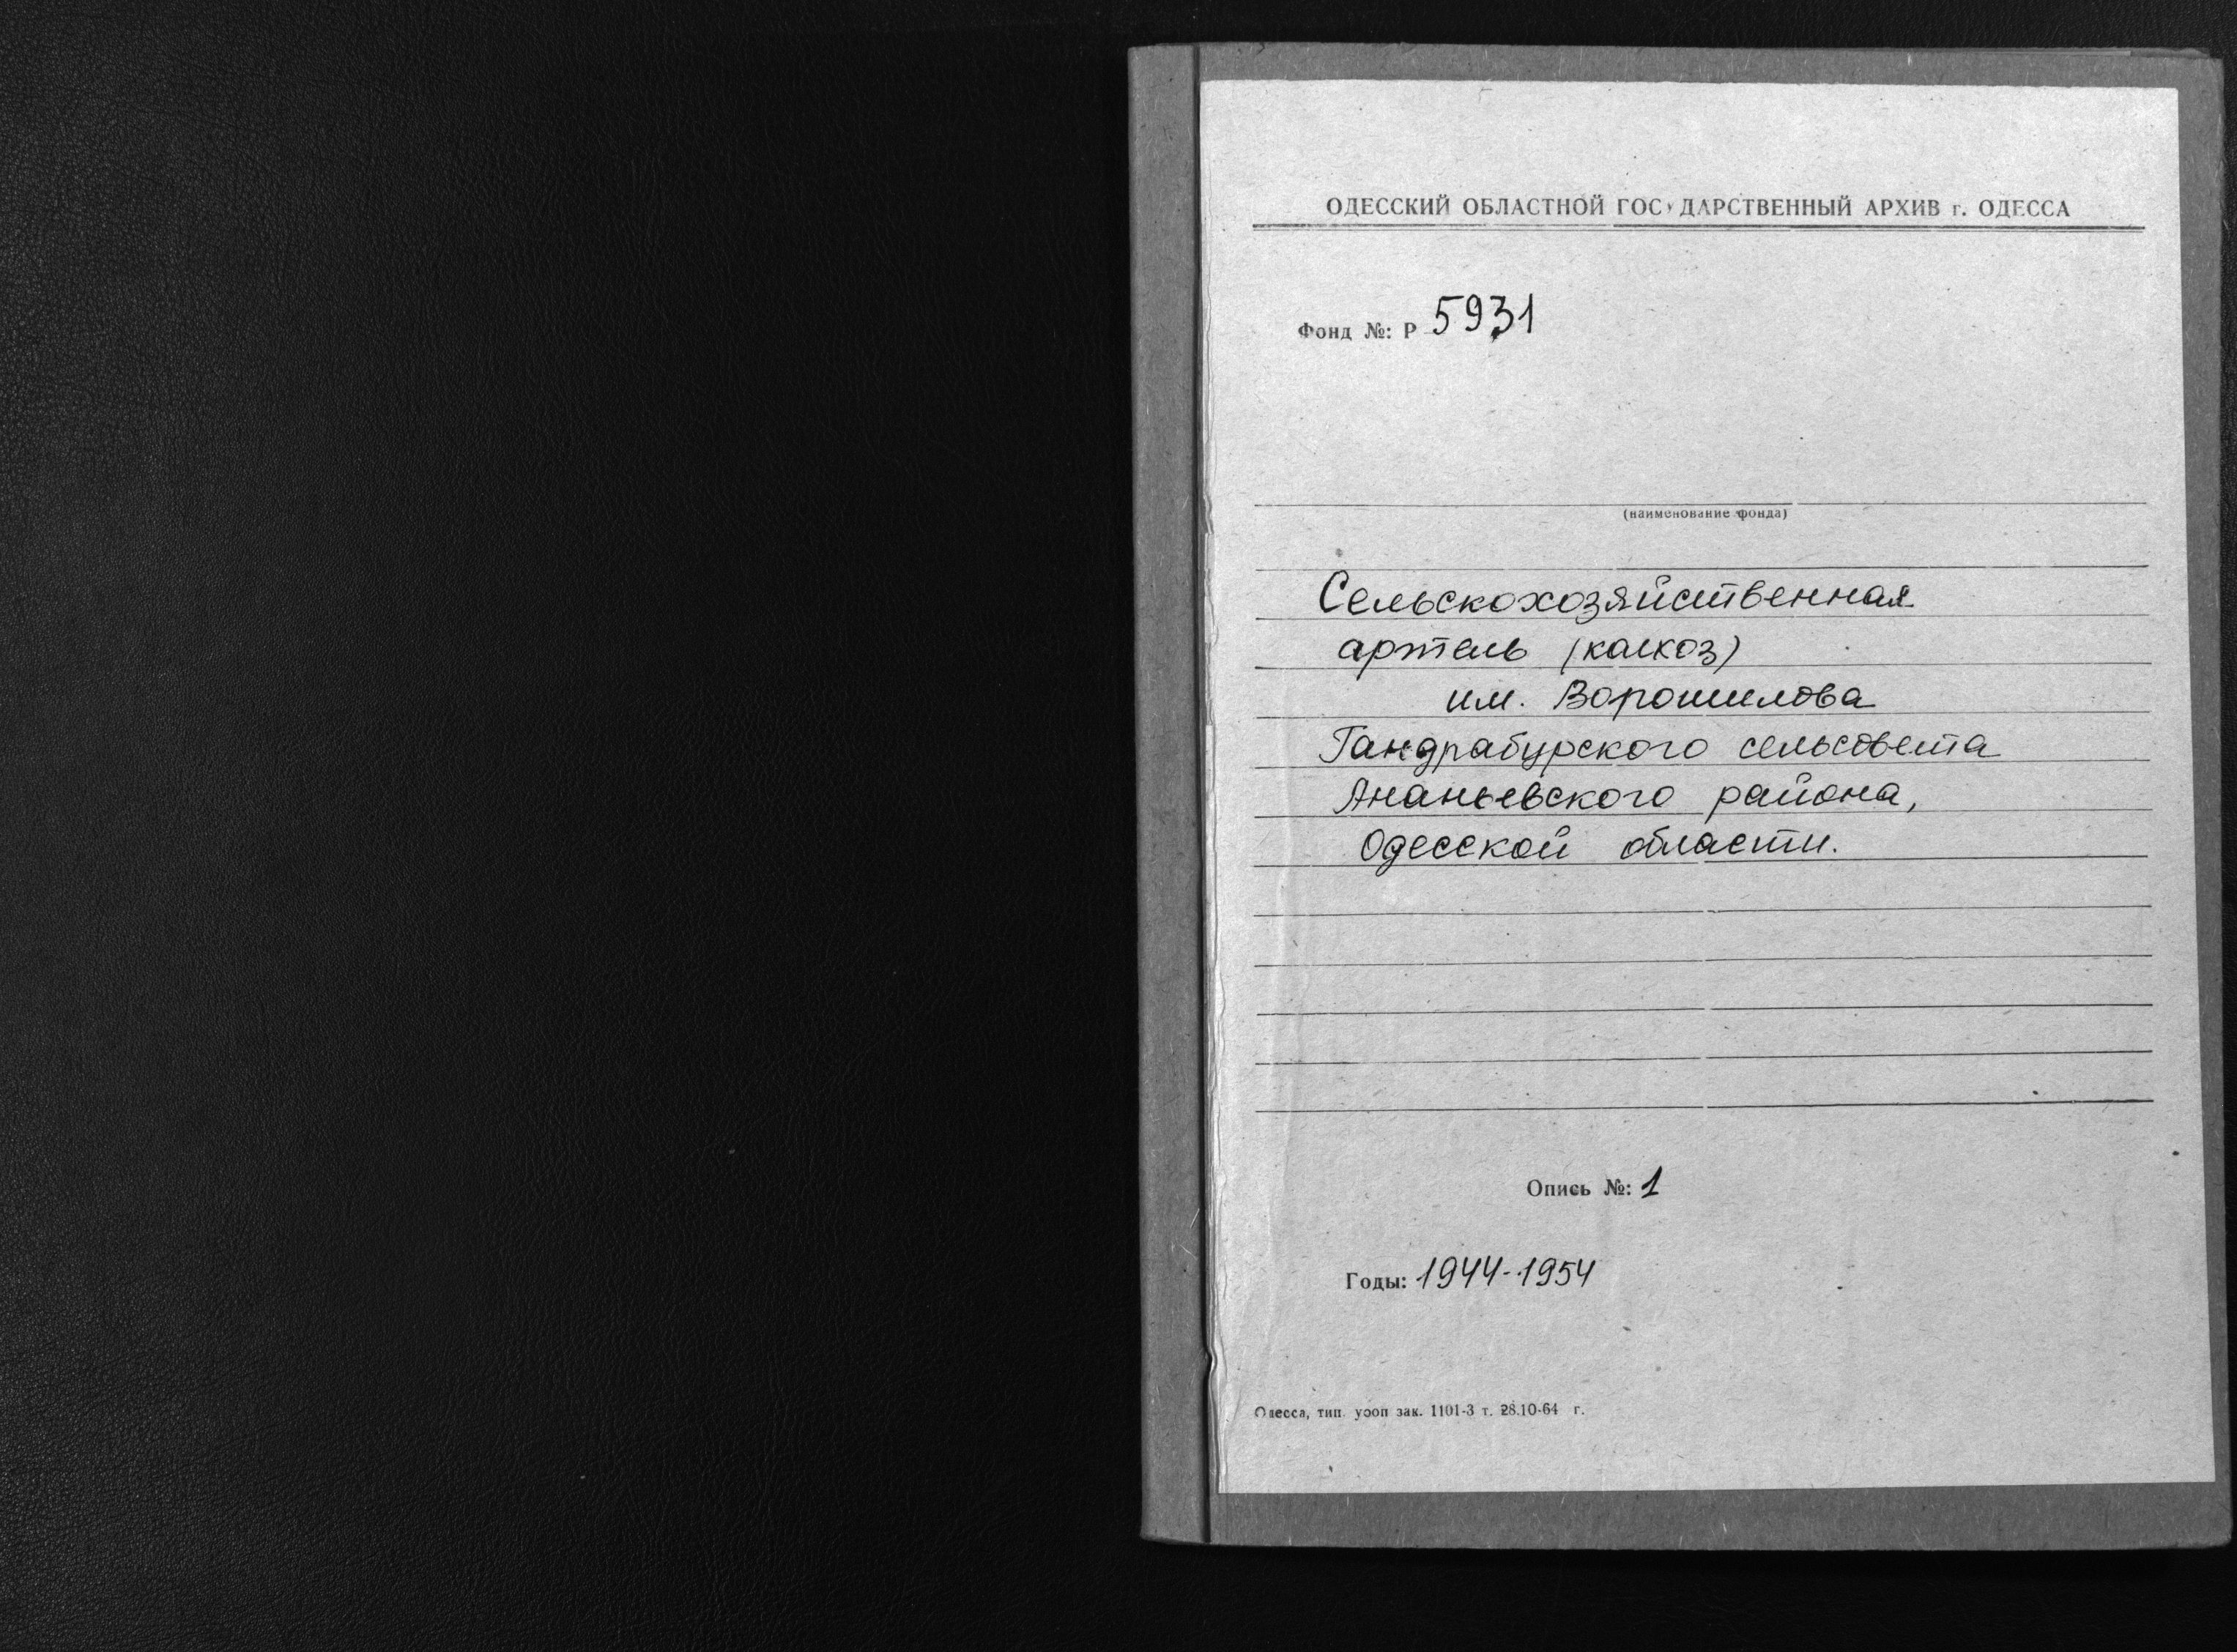 ОДЕССКИЙ ОБЛАСТНОЙ ГОСУДАРСТВЕННЫЙ АРХИВ г. ОДЕССА
Фонд №: Р 5931
(наименование фонда)
Сельскохозяйственная
артель (колхоз)
им. Ворошилова
Гандрабурского сельсовета
Ананьевского района,
Одесской области.
Опись №: 1
Годы: 1944-1954
Одесса, тип. уооп зак. 1101-3 т. 28.10-64 г.